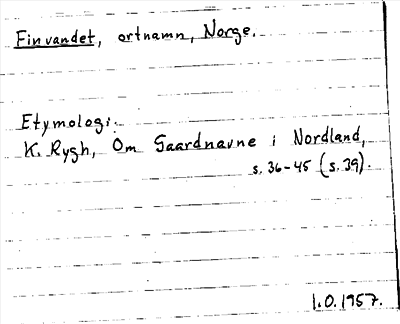 Finvandet, ortnamn, Norge.
Etymologi:
K. Rygh, Om Gaardnavne i Nordland,
s. 36-45 (s. 39).
1.0.1957.